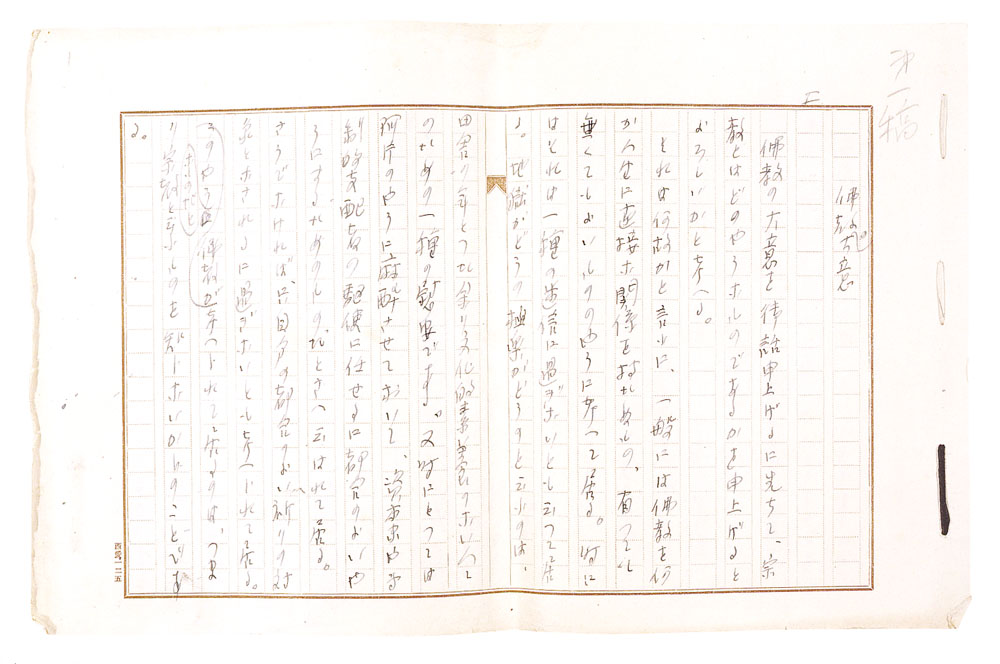 第一稿
佛教の大意
佛教の大意を御話申上げるに先ちて、宗
教とはどのやうなものであるかを申上げると
よろしいかと考へる。
それは何故かと言ふに、一般には佛教を何
か人生に直接な関係を持たぬもの、有つても
無くてもよいもののやうに考へて居る。時に
はそれは一種の迷信に過ぎないとも云つて居
る。地獄がどうの極楽がどうのと云ふのは、
田舎の年とつた余り文化的素養のない人
のための一種の慰安である。又時にとつては
阿片のやうに麻酔させておいて、資本家や
制的支配者の駆使に任せるに都合のよいや
うにするためのもの、だとさへ云はれて居る。
さうでなければ、只自分の都合のよい祈りの対
象とされるに過ぎないとも考へられて居る。
このやうに佛教が考へられて居るのは、つま
り宗教と云ふものを知らないからのことであ
る。
西館一二五